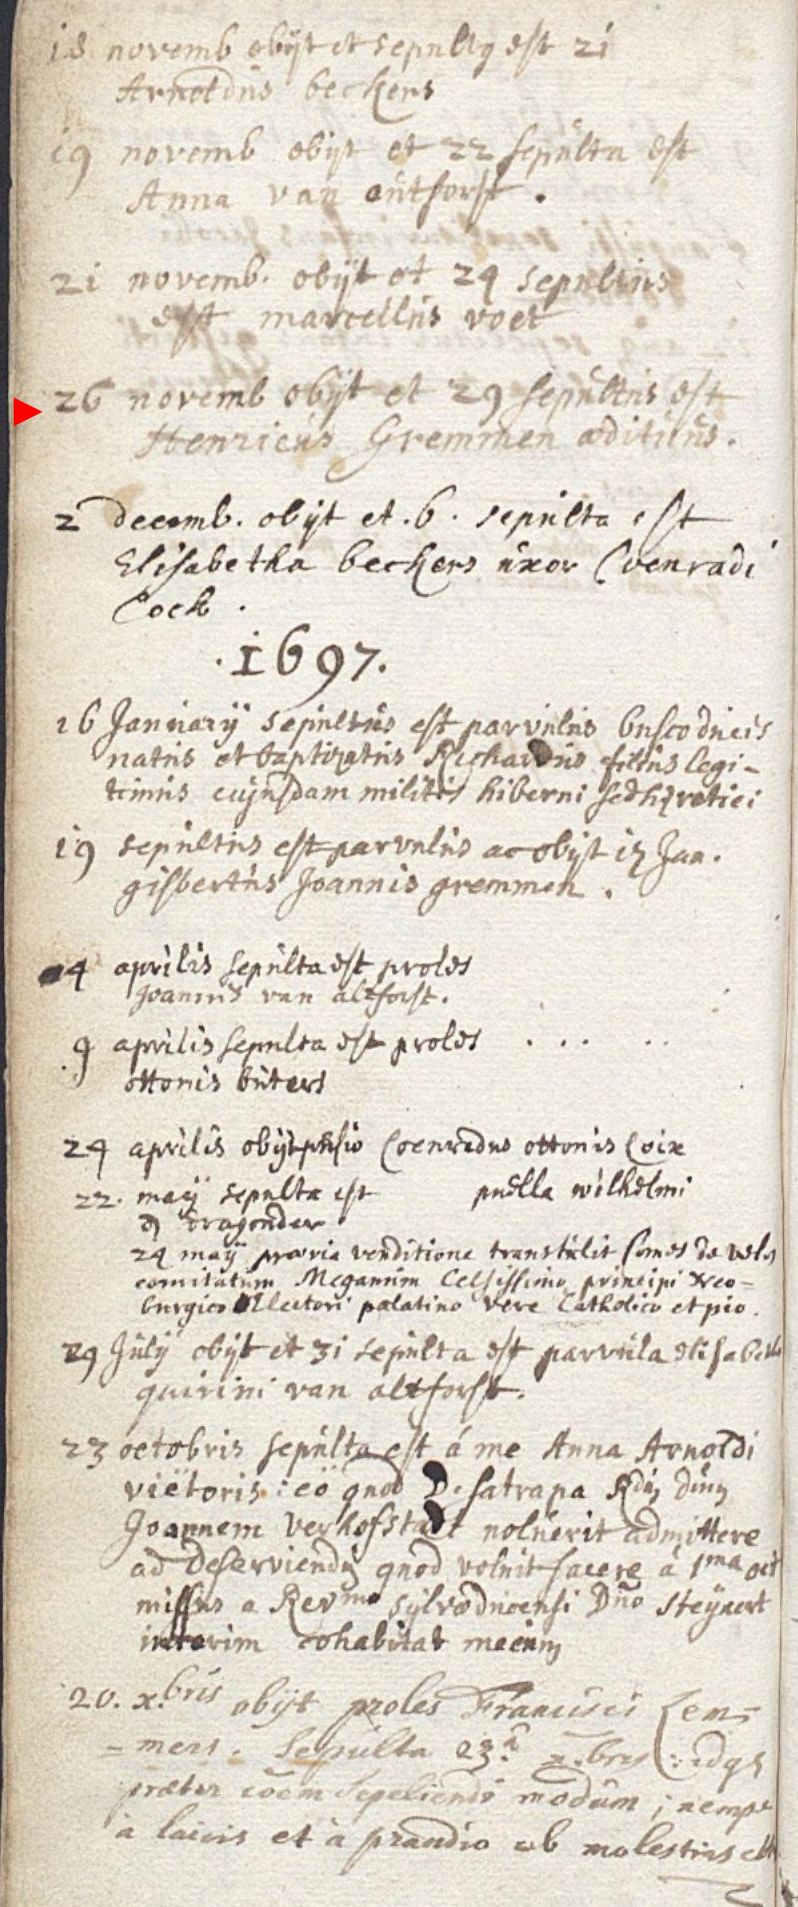 18 novemb obijt et sepultq est 21
Arnoldus beckers
19 novemb obijt et 22 sepulta est
Anna van outforst.
21 novemb. obijt et 24 sepultus
est marcellus voet
26 novemb obijt et 29 sepultus est
Henricus Gremmen ædituus.
2 decemb. obijt et .6. sepulta est
Elisabetha beckers uxor Coenradi
Cock.
.1697.
16 Januarij sepultus est parvulus buscoducis
natus et baptizatus Richardus filius legi-
timus cujusdam militis hiberni sed hæretici
19 sepultus est parvulus ac obijt 17 Jan.
gisbertus Joannis gremmen.
4 aprilis sepulta est proles
Joannis van altforst.
9 aprilis sepulta est proles . . . . . .
ottonis buters
24 aprilis obijt Coenradus ottonis Coix
22. maij sepulta est puella wilhelmi
dragonder
24 maij prævia venditione transtulit Comes de vehe
comitatum Meganum Celsissimo principi Neo-
burgico Electori palatino vere Catholico et pio.
29 Julij obijt et 31 sepulta est parvula elisabeth
quirini van altforst.
23 octobris sepulta est á me Anna Arnoldi
viëtoris: eo quod D. satrapa Rdũ dñũ
Joannem verhofstadt noluerit admittere
ad deserviendũ quod voluit facere á 1ma oct
missus a Revmo sylvæducensi Dño steÿaert
interim cohabitat mecum
20. x.bris obijt proles Francisci Lem-
=mers. Sepulta 23.a x.bris: idq3
præter cõem sepeliendi modum; nempe
à laicis et à prandio ob molestias